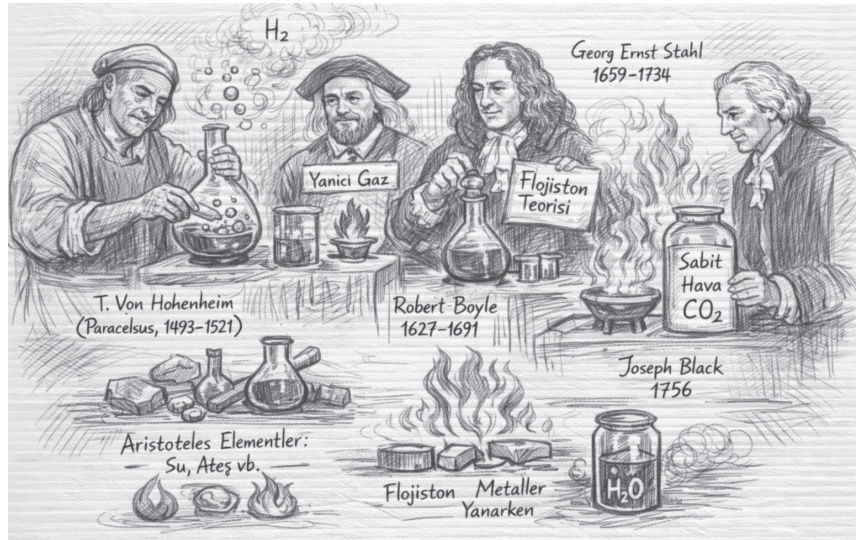 H₂
Georg Ernst Stahl
1659–1734
Yanici Gaz
Flojiston
Teorisi
Sabit
Hava
CO₂
T. Von Hohenheim
(Paracelsus, 1493–1521)
Robert Boyle
1627–1691
Joseph Black
1756
Aristoteles Elementler:
Su, Ateş vb.
Flojiston Metaller
Yanarken
H₂O